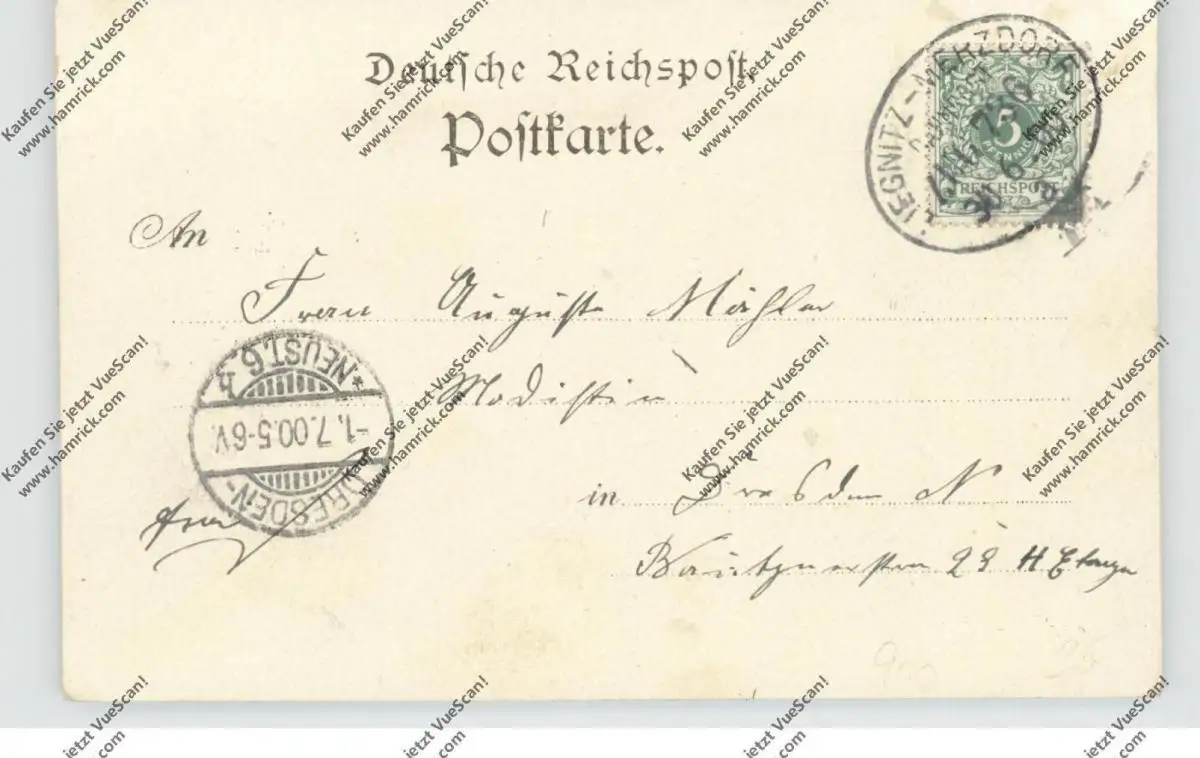 Deutsche Reichspost.
Postkarte.
LIEGNITZ-MERZDORF
BAHNPOST
ZUG
5
REICHSPOST
An
Frau Auguste Mähler
Modistin
in Dresden N
Bautznerstr 29 II Etage
DRESDEN-NEUST.6.
*
h
-1.7.00.5-6V.
Kaufen Sie jetzt VueScan!
www.hamrick.com